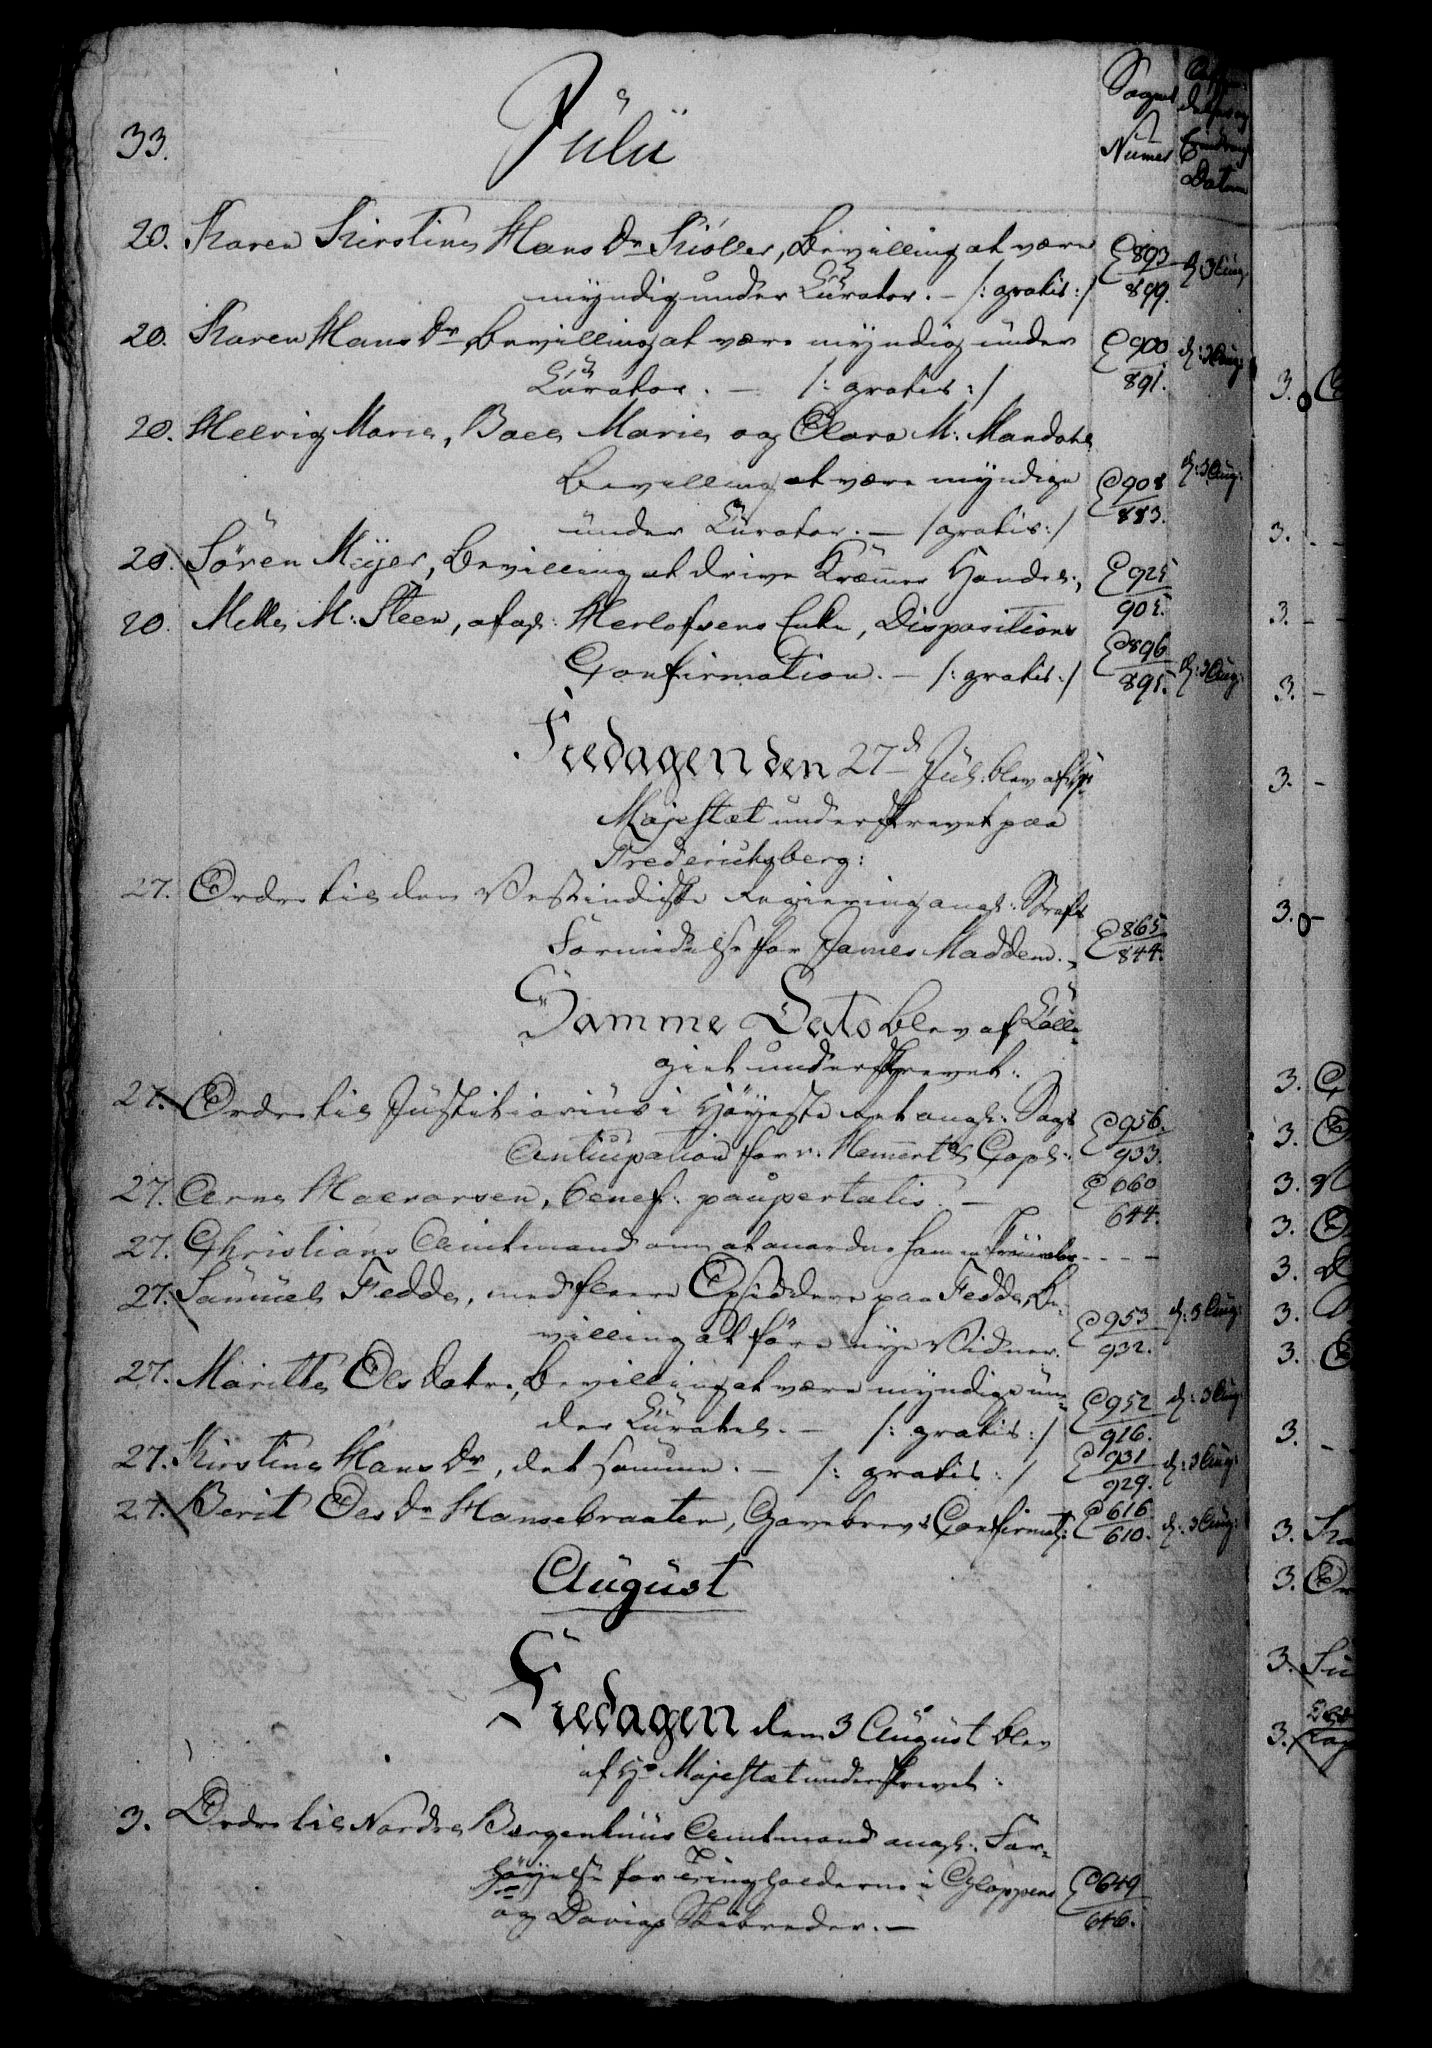 33.
Julii
Sagens
Numer
Datum
20. Karen Kirstine Hans Dr Kiöller, Bevilling at være
myndig under Curator. – /: gratis :/ E 893 / 899. d: 3 Aug:
20. Karen Hans Dr, Bevilling at være myndig under
Curator. – /: gratis :/ E 900 / 891. d: 3 Aug:
20. Helevig Marie, Boel Marie og Clara M: Mandahl
Bevilling at være myndige
under Curator. – /gratis:/ E 908 / 883. d: 3 Aug:
20. Sören Meyer, Bevilling at drive Kræmmer Handel., E 925 / 905.
20. Mette M: Steen, afg: Herlofsens Enke, Dispositions
Confirmation. – /: gratis :/ E 896 / 895. d: 3 Aug:
Fredagen den 27d Jul: blev af Hs
Majestæt underskrevet paa
Fredericksberg:
27. Ordre til den Vestindiske Regiering ang: Straffs
Formidelse for James Madden., E 865 / 844.
Samme Dato blev af Colle-
giet underskrevet.
27. Ordre til Justitiarius i Höyeste Ret ang: Sags
Anticipation for v: Hemert &c Copl: E 956. / 933.
27. Arne Haevorsen, benef: paupertatis. – E 660 / 644.
27. Christians Amtmand om at anordne Samme - - - -
27. Samuel Fedde, med fleere Opsiddere paa Fedde, Be-
villing at före nye Vidner. E 953 / 932. d: 3 Aug:
27. Maritte Olsdatr., Bevilling at være myndige un-
der Curatel. – /: gratis :/ E 952 / 916. d: 3 Aug:
27. Kirstine Hans Dr, det samme. – /: gratis :/ E 931 / 929. d: 3 Aug:
27. Berit Ols Dr Hansebraaten, Gavebrevs Confirmat: E 616 / 610. d: 3 Aug:
August
Fredagen den 3 August blev
af Hs Majestæt underskrevet:
3. Ordre til Nordre Bergenhuus Amtmand ang: For-
höyelse for Tingholderne i Gloppens
og Davigs Skibreder. – E 649 / 646.